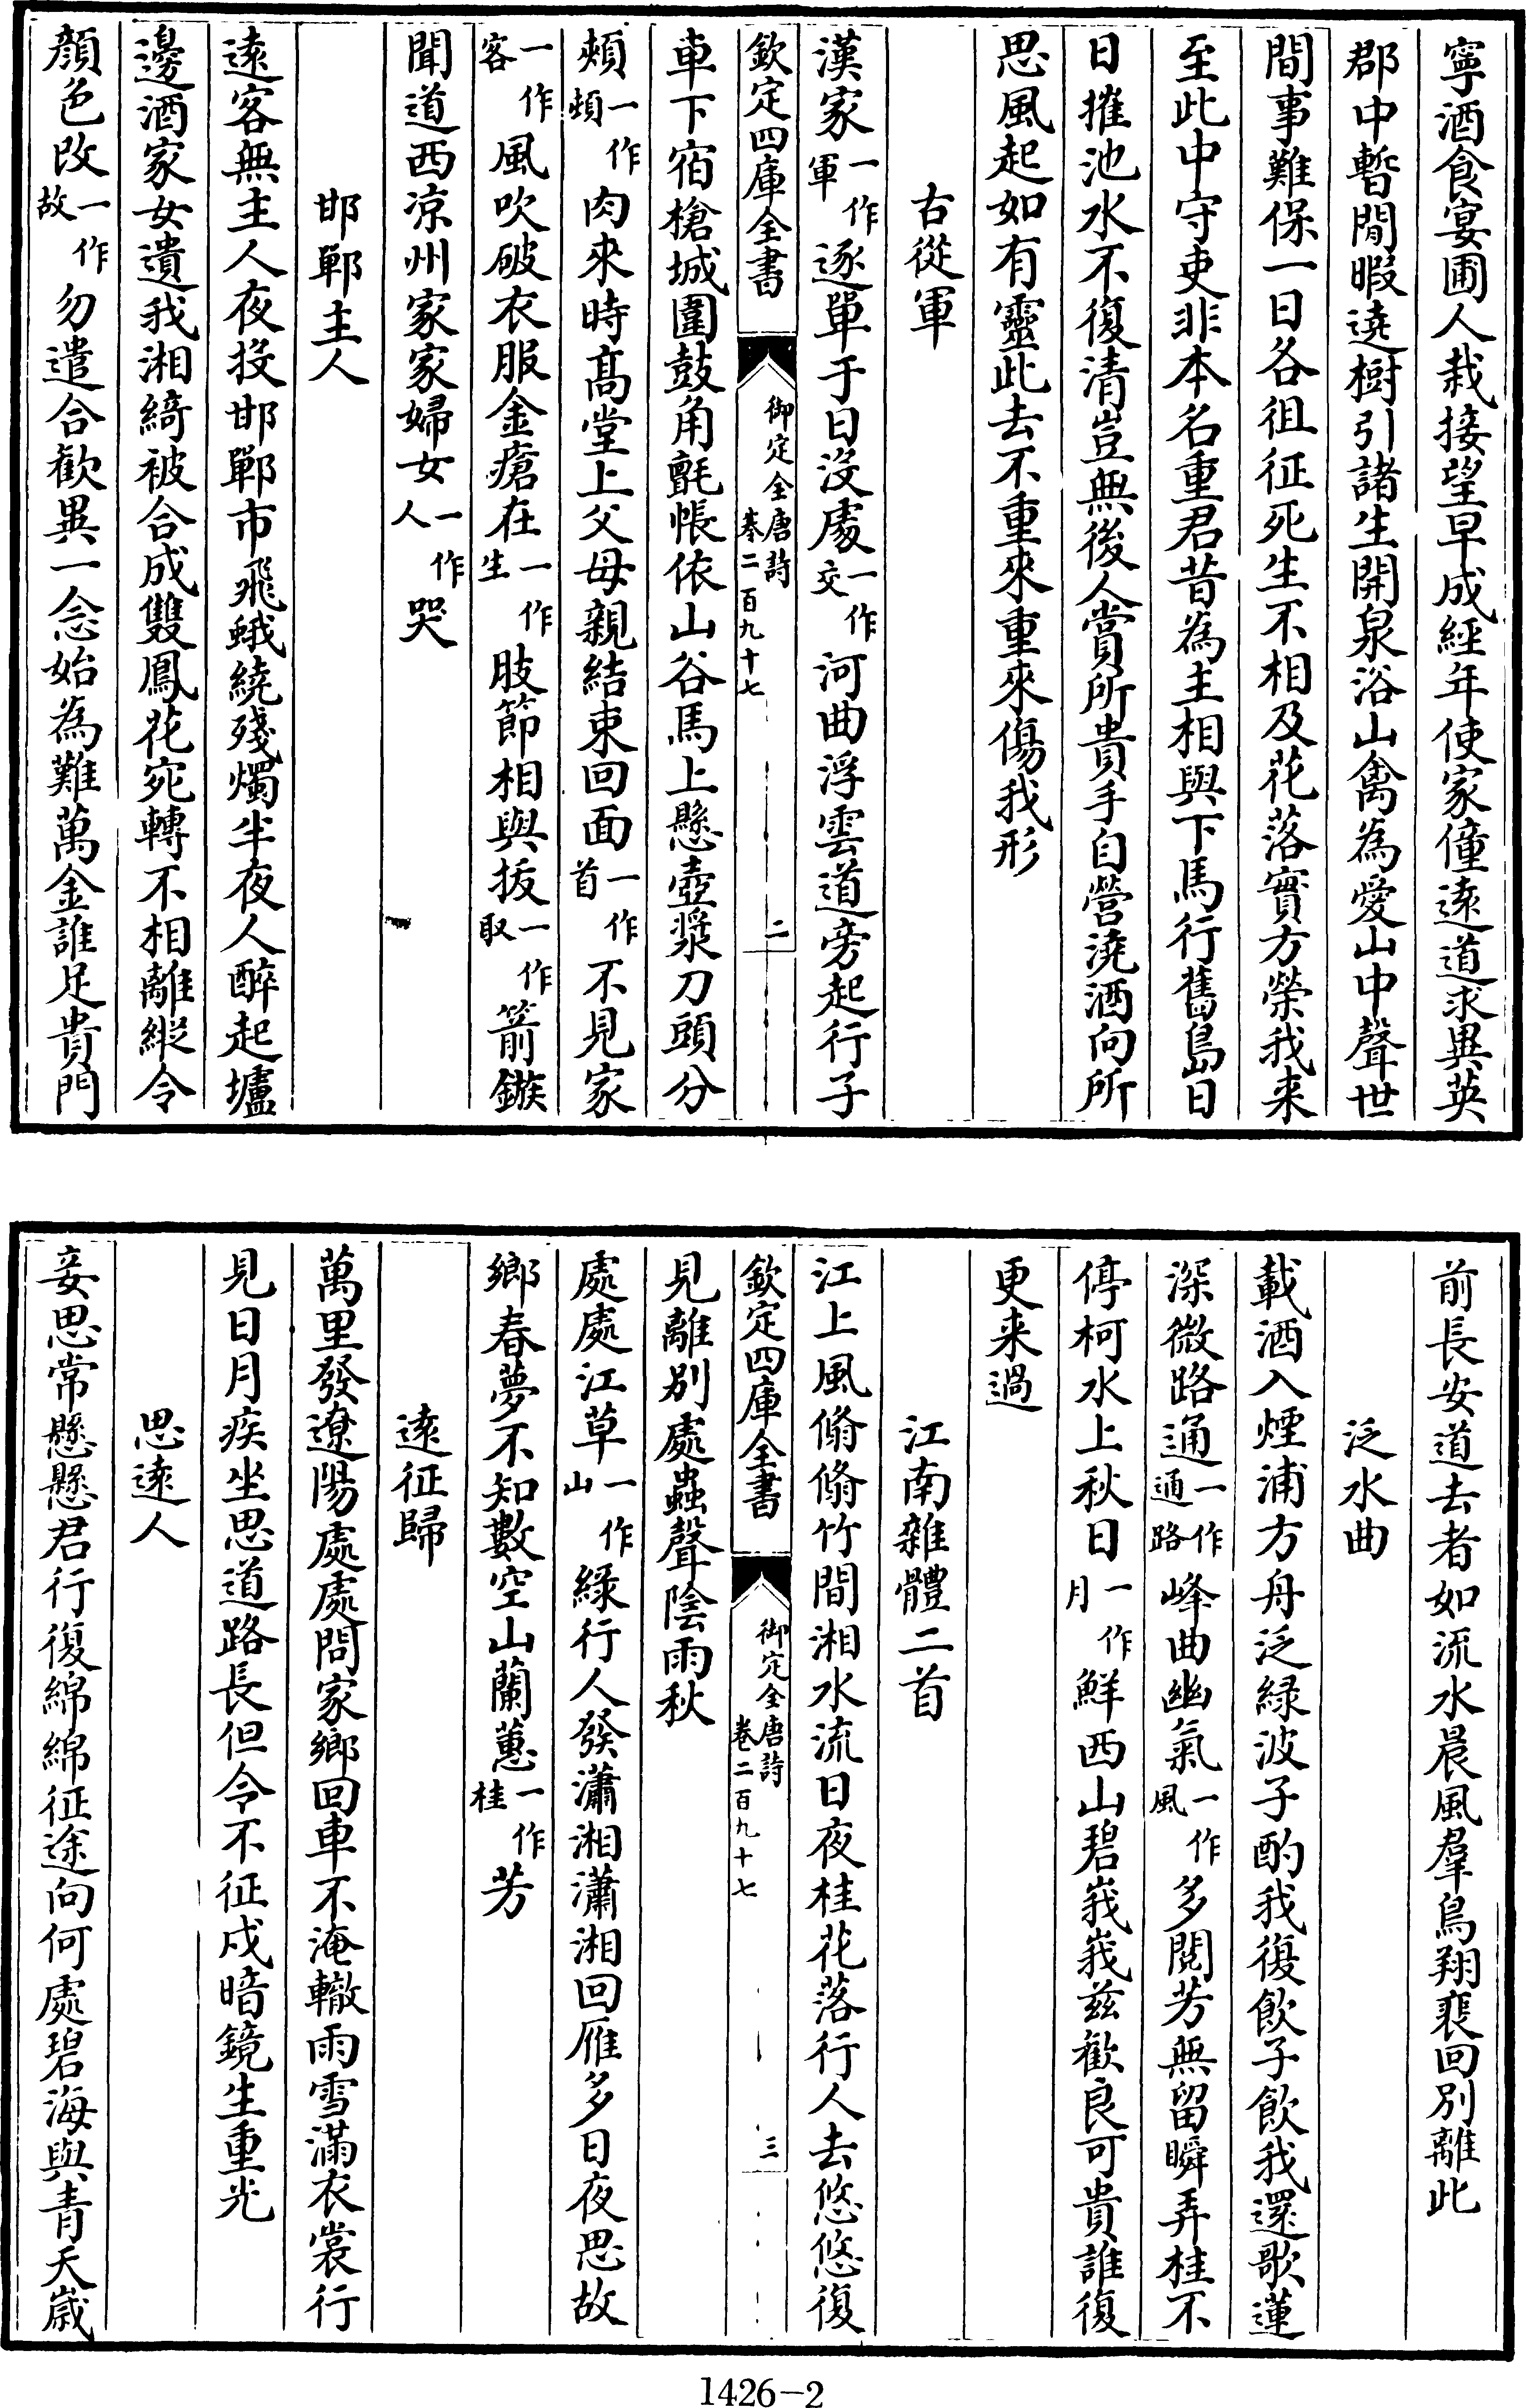 寧酒食宴圃人栽接望早成經年使家僮逺道求異英
郡中暫閒暇遶樹引諸生開泉浴山禽為愛山中聲世
間事難保一日各徂征死生不相及花落實方榮我来
至此中守吏非本名重君昔為主相與下馬行舊島日
日摧池水不復清豈無後人賞所貴手自營澆酒向所
思風起如有靈此去不重來重來傷我形
右從軍
漢家一作軍逐單于日沒處一作交河曲浮雲道旁起行子
欽定四庫全書 御定全唐詩卷二百九十七 二
車下宿槍城圍鼓角氈帳依山谷馬上懸壺漿刀頭分
頰一作頓肉來時髙堂上父母親結束回面一作首不見家
一作客風吹破衣服金瘡在一作生肢節相與拔一作取箭鏃
聞道西凉州家家婦女一作人哭
邯鄲主人
逺客無主人夜投邯鄲市飛蛾繞殘燭半夜人醉起壚
邊酒家女遺我湘綺被合成雙鳳花宛轉不相離縱令
顔色改一作故勿遣合歡異一念始為難萬金誰足貴門
前長安道去者如流水晨風羣鳥翔裵回別離此
泛水曲
載酒入煙浦方舟泛緑波子酌我復飲子飲我還歌蓮
深微路通一作通路峰曲幽氣一作風多閱芳無留瞬弄桂不
停柯水上秋日一作月鮮西山碧峩峩兹歡良可貴誰復
更来過
江南雜體二首
江上風翛翛竹間湘水流日夜桂花落行人去悠悠復
欽定四庫全書 御定全唐詩卷二百九十七 三
見離别處蟲聲陰雨秋
處處江草一作山緑行人發瀟湘瀟湘回雁多日夜思故
鄉春夢不知數空山蘭蕙一作桂芳
逺征歸
萬里發遼陽處處問家鄉回車不淹轍雨雪滿衣裳行
見日月疾坐思道路長但令不征戍暗鏡生重光
思逺人
妾思常懸懸君行復綿綿征途向何處碧海與青天嵗
1426-2